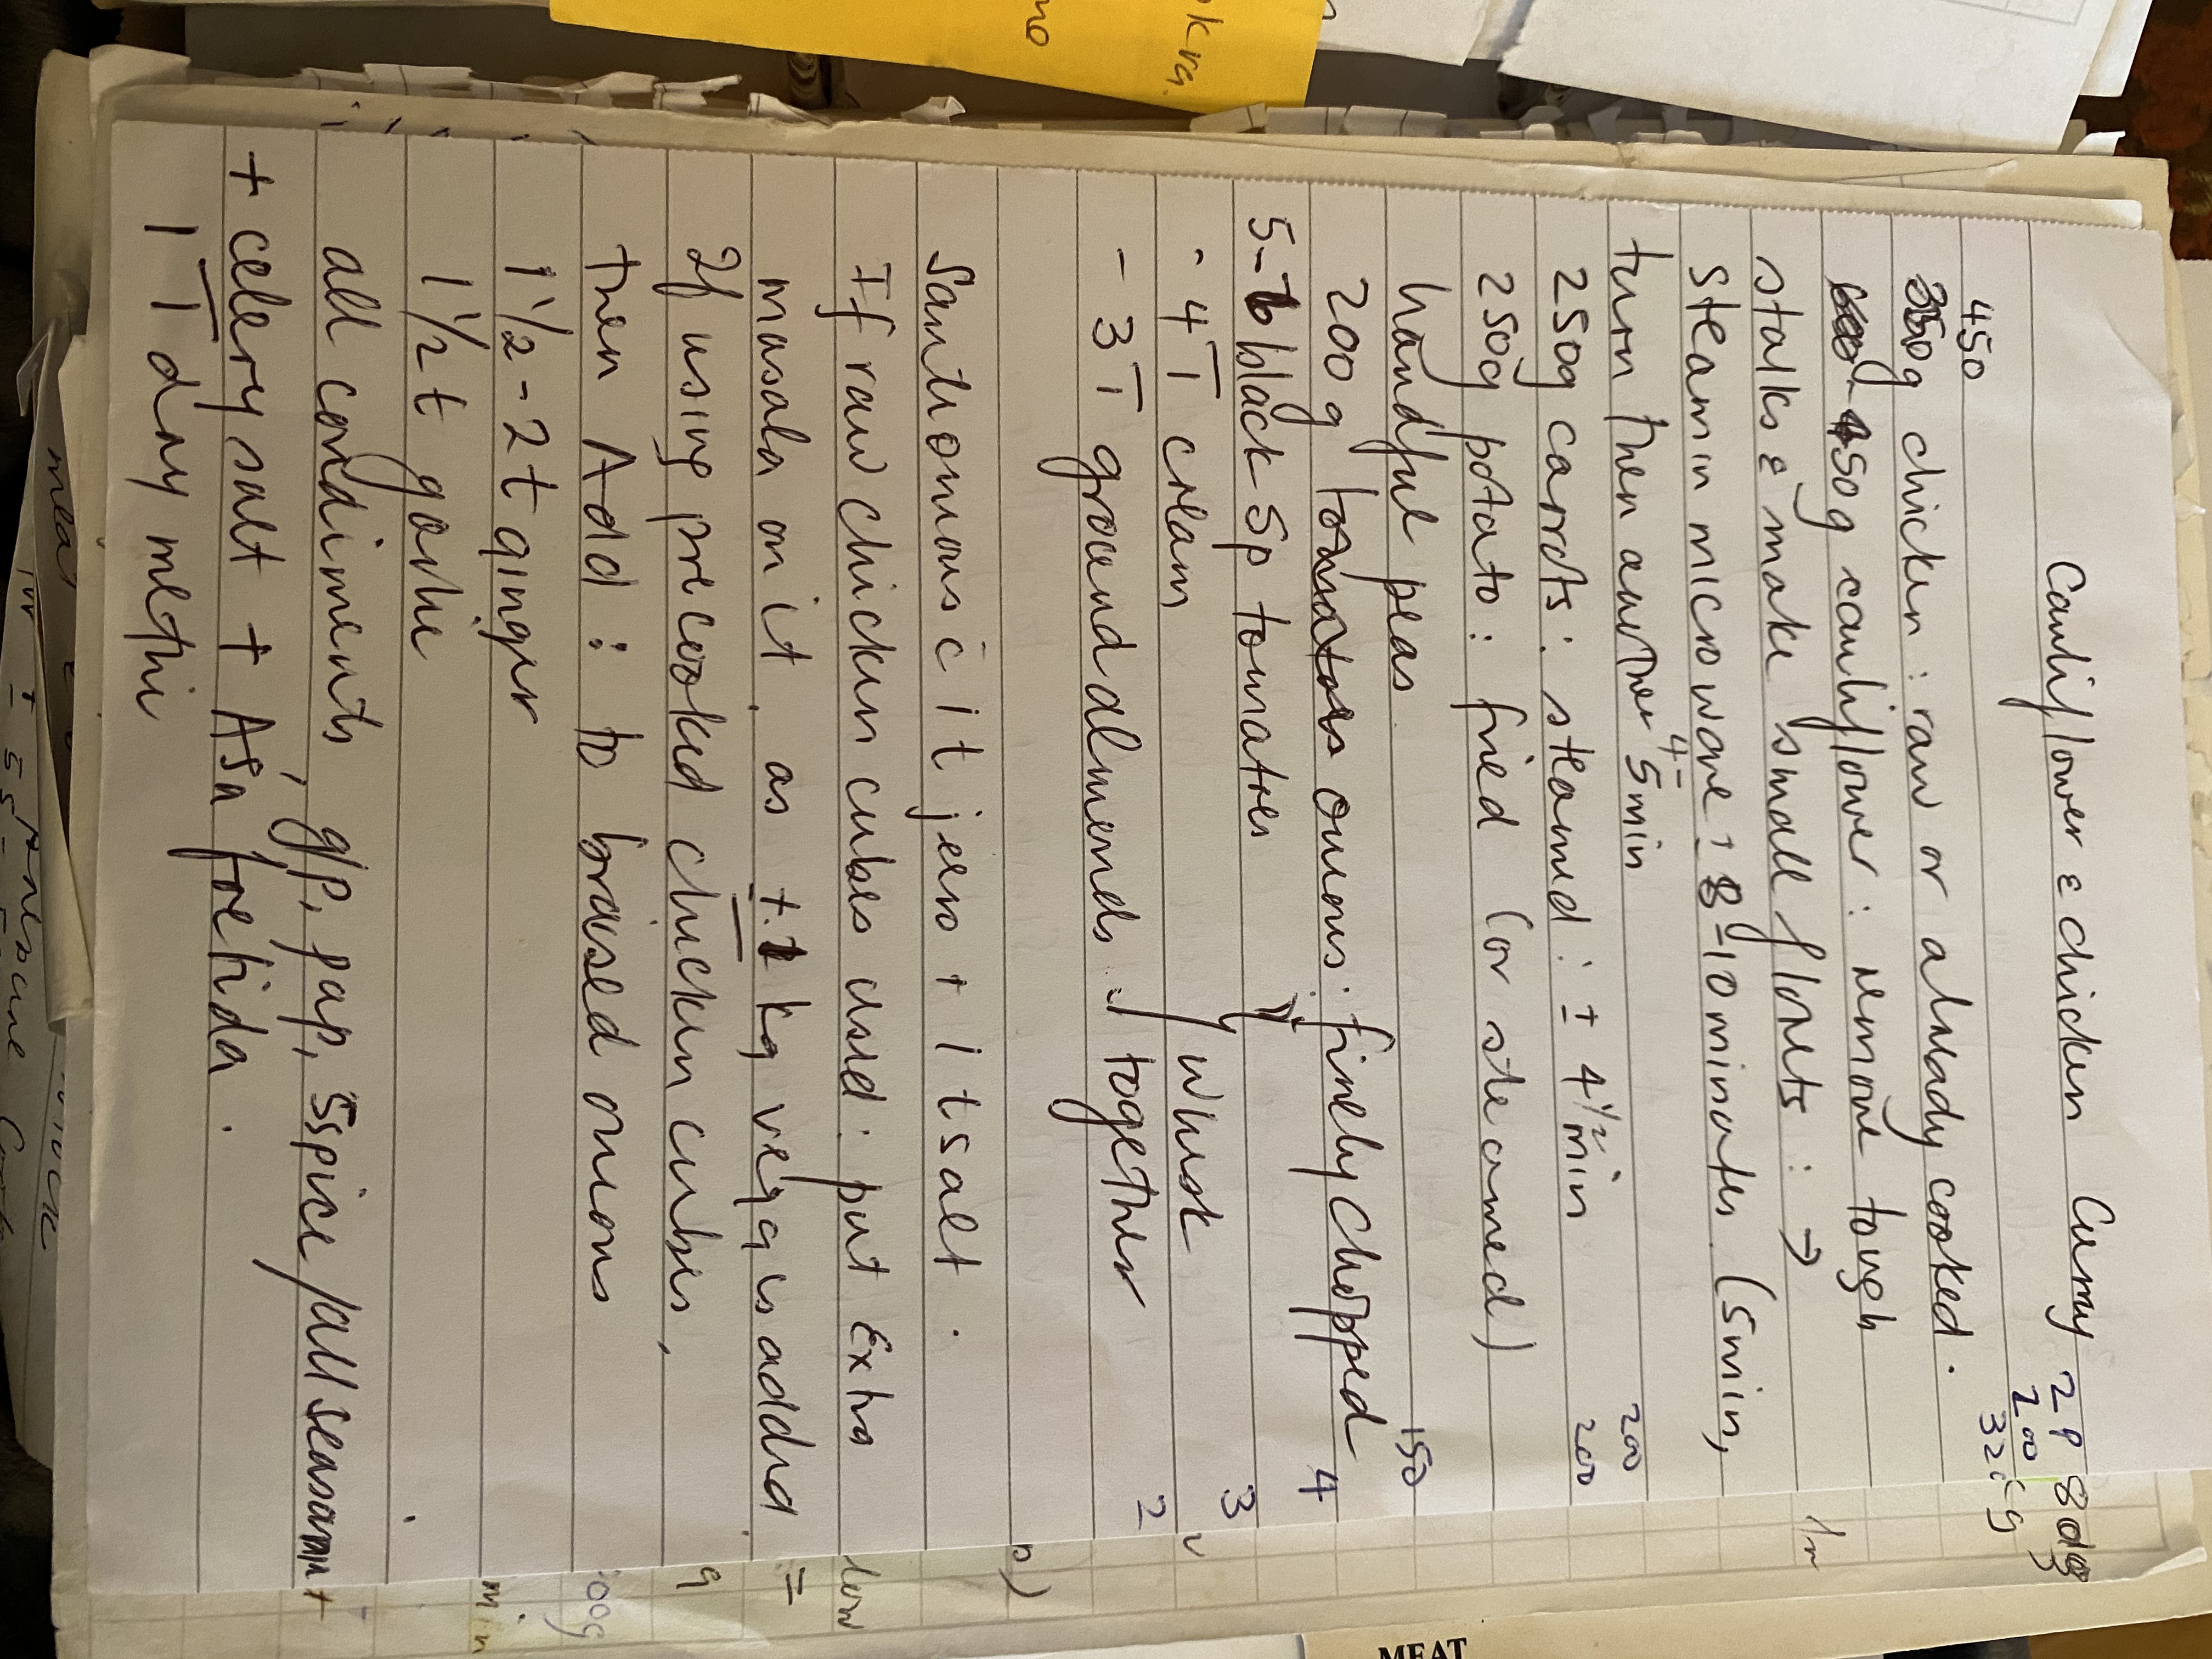 Cauliflower & chicken Curry 2p 80dg
200
450 32
350g chicken : raw or already cooked.
450g cauliflower : remove tough
stalks & make small florets : →
steam in microwave : 8-10 minutes (5min,
turn then another 4-5min
250g carrots : steamed : ± 4½ min 200
250g potato : fried (or steamed) 200
handful peas
200g tomatoes onions : finely chopped 150
5-6 black sp tomatoes 4
- 4T cream } whisk 3
- 3T ground almonds } together 2
Saut onions c̄ 1t jeero + 1t salt.
If raw chicken cubes used : put Extra
masala on it, as ± 1 kg veg is added
If using precooked chicken cubes,
then Add : to braised onions
1½-2t ginger
1½t garlic
all condiments, g/p, pap, 5spice/all season +
+ celery salt + Asa foetida.
1T dry methi
okra
no
MEAT
low
=
g
00g
min